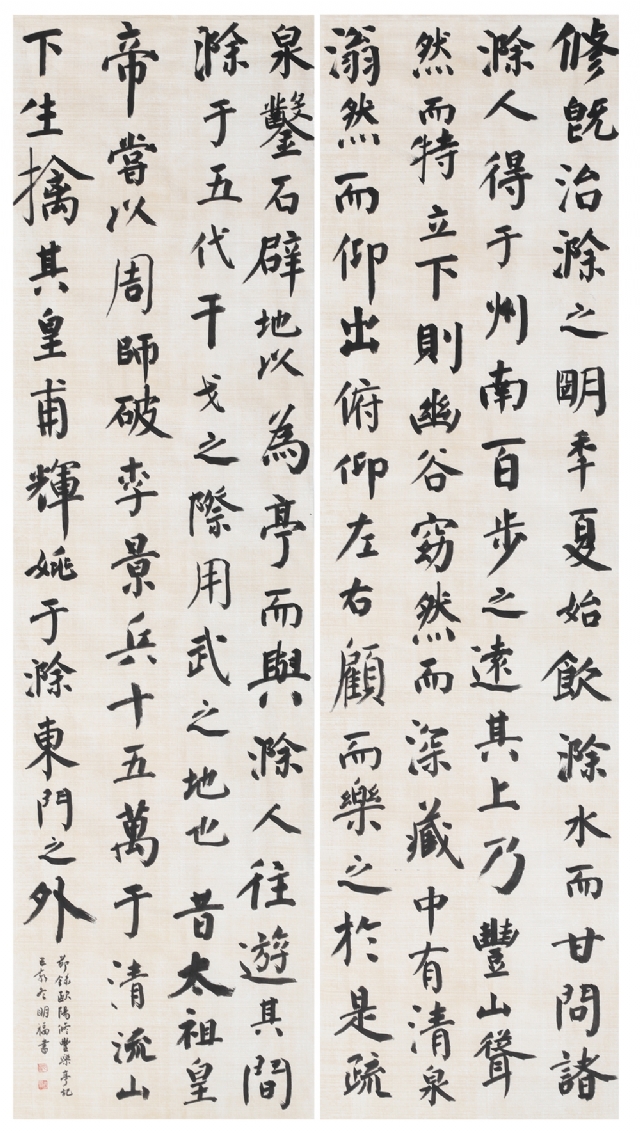 脩既治滁之眀年夏始飲滁水而甘問諸
滁人得于州南百步之遠其上乃豐山聳
然而特立下則幽谷窈然而深藏中有清泉
滃然而仰出俯仰左右顧而樂之於是疏
泉鑿石辟地以為亭而與滁人往遊其間
滁于五代干戈之際用武之地也昔太祖皇
帝嘗以周師破李景兵十五萬于清流山
下生擒其皇甫輝姚于滁東門之外
節錄歐陽修豐樂亭記
冬明福書